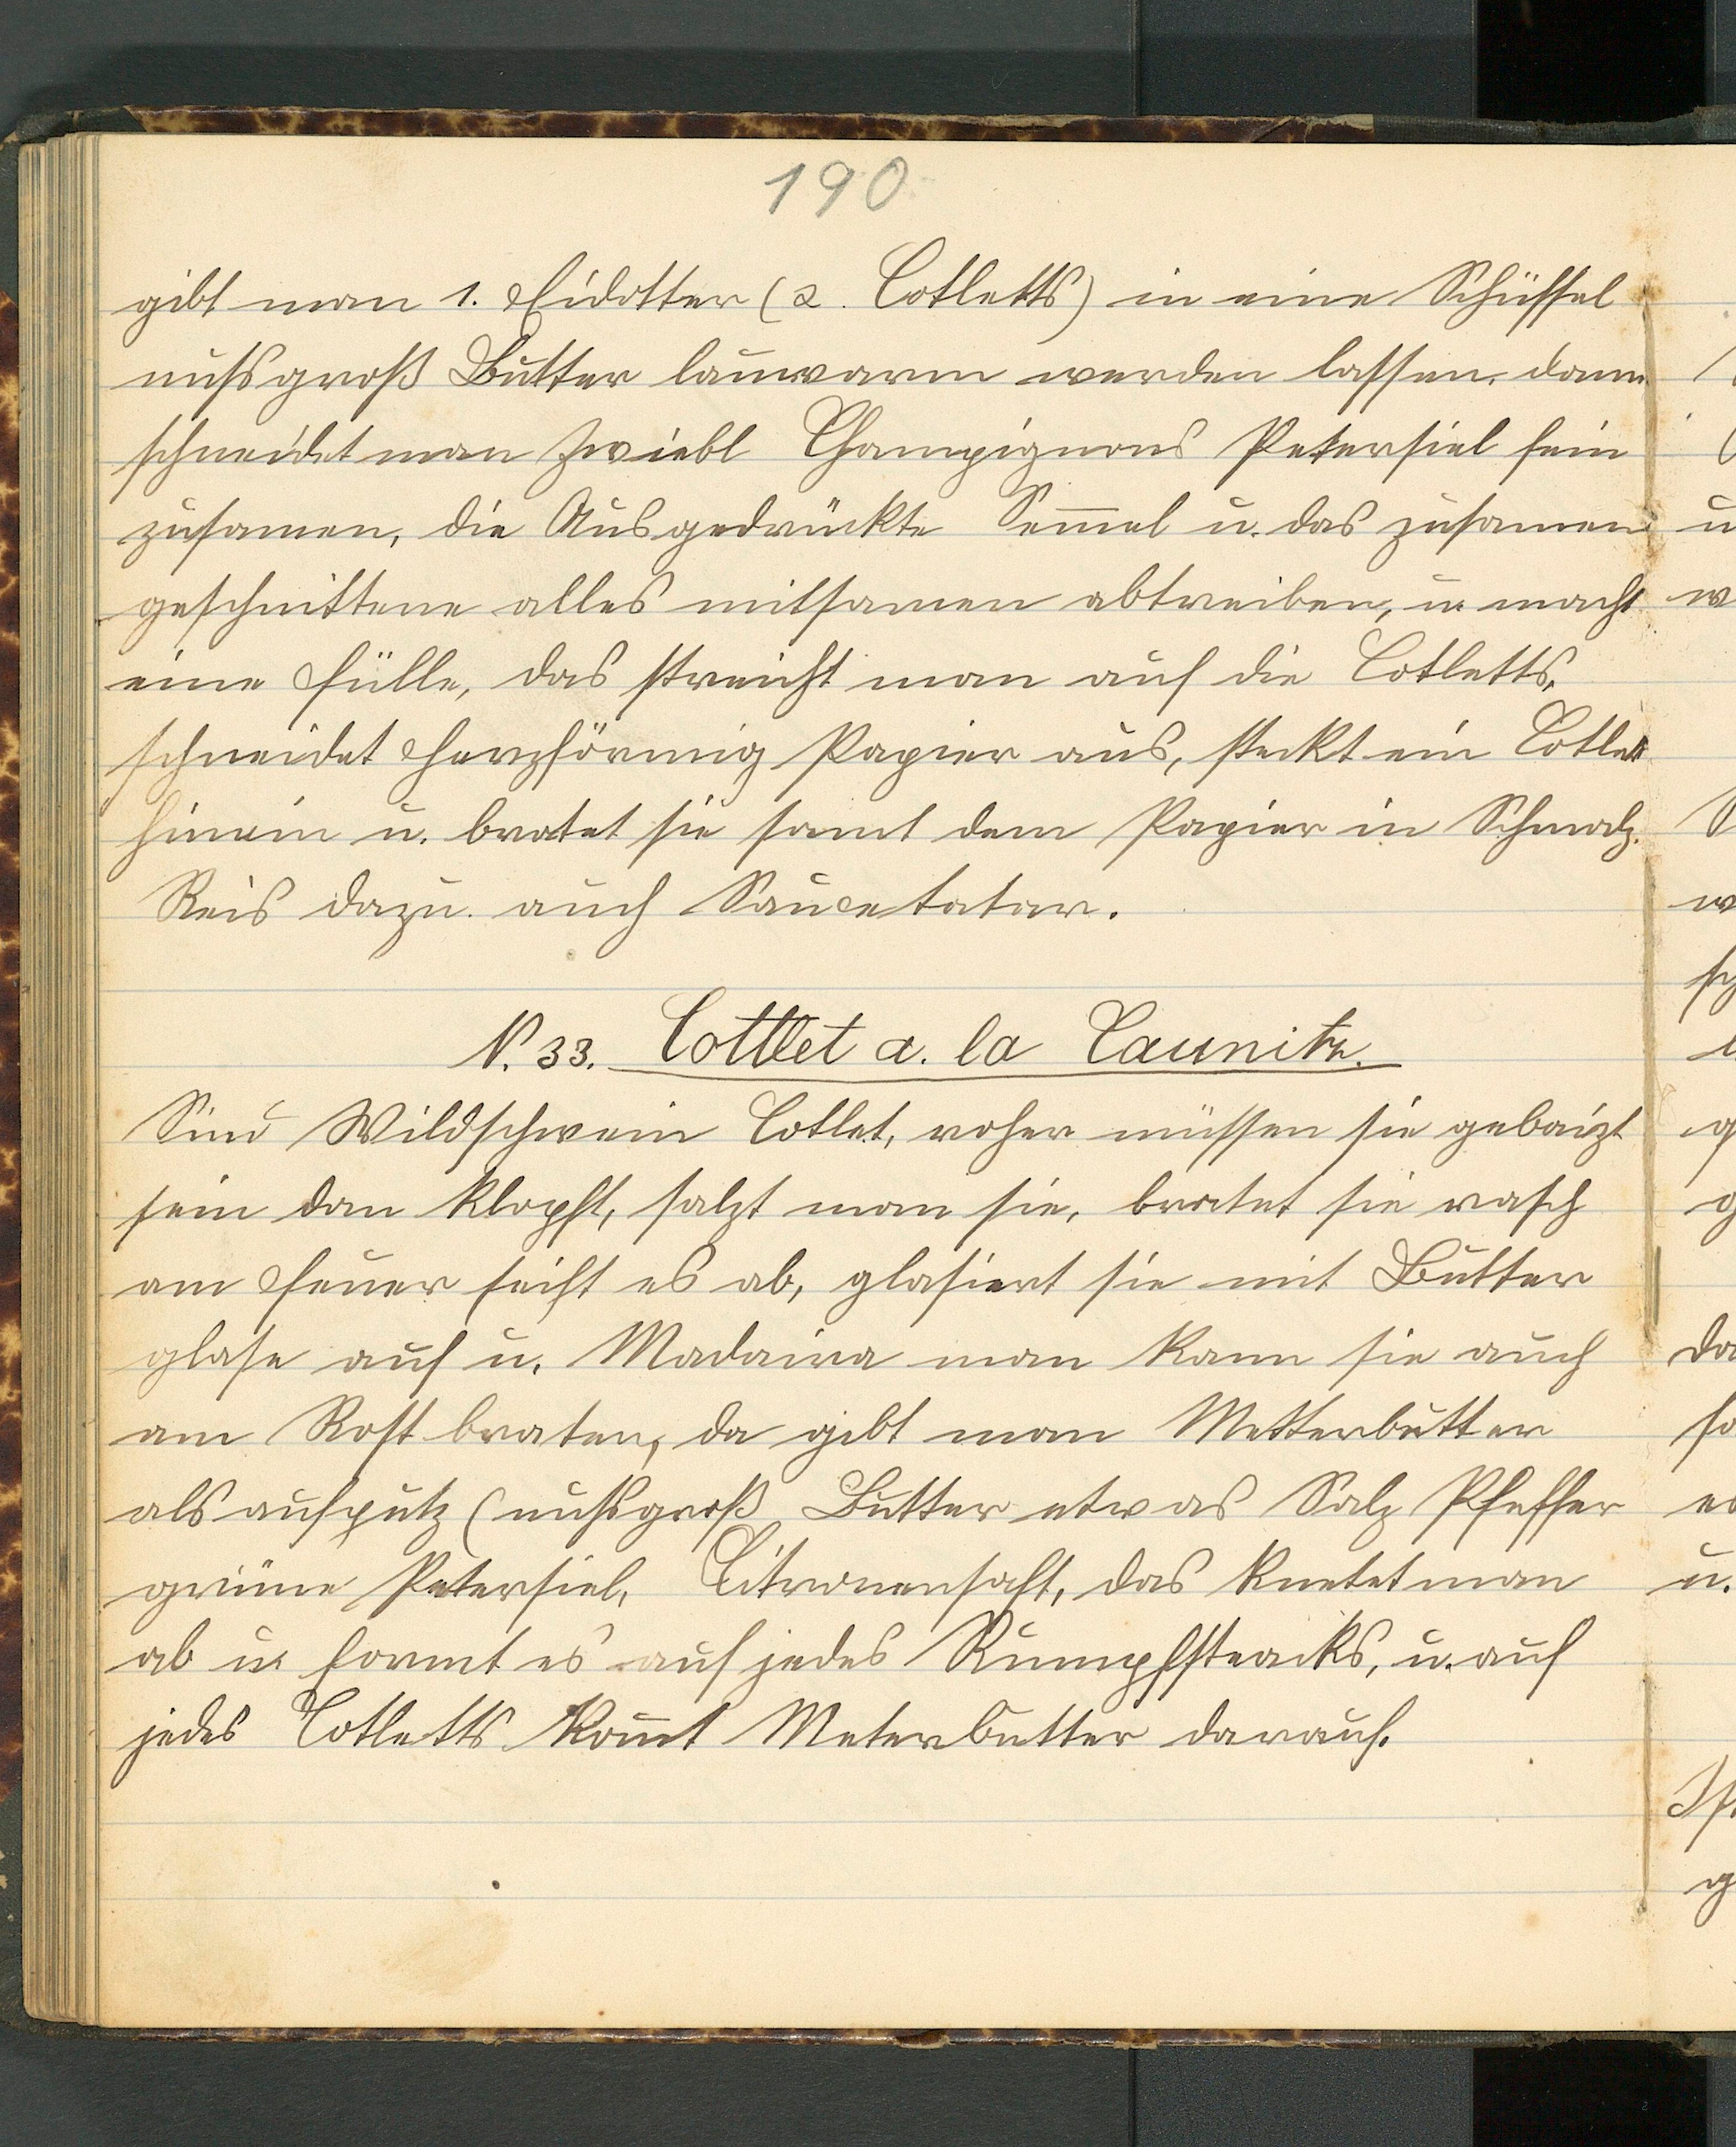 190
gibt man 1. Eidotter (2. Cotletts) in eine Schüssel
nußgroß Butter lauwarm werden lassen. dann
schneidet man Zwiebl Champignons Petersiel fein
zusamen, die Ausgedrückte Sem̅el u. das zusamen
geschnittene alles mitsamen abtreiben, u. macht
eine Fülle, das streicht man auf die Cotletts,
schneidet Herzförmig Papier aus, steckt ein Cotlett
hinein u. bratet sie samt dem Papier in Schmalz.
Reis dazu. auch Saucetatar.
N. 33. Cottlet a. la Caunitz.
Sind Wildschwein Cotlet, voher müssen sie gebaizt
sein dan klopft, salzt man sie, bratet sie rasch
am Feuer seiht es ab, glasiert sie mit Butter
glase auf u. Madaira man kann sie auch
am Rost braten, da gibt man Metterbutter
als aufputz (nußgroß Butter etwas Salz Pfeffer
grüne Petersiel, Citronensaft, das knetet man
ab u. formt es auf jedes Rumpfsteaks, u. auf
jedes Cotletts kom̅t Meterbutter darauf.